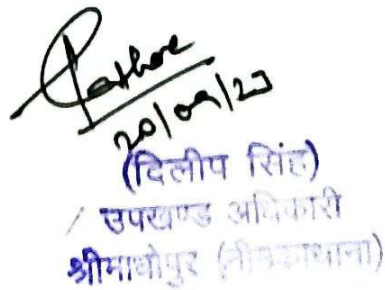 Rathore
20/09/23
(दिलीप सिंह)
उपखण्ड अधिकारी
श्रीमाधोपुर (नीमकाथाना)